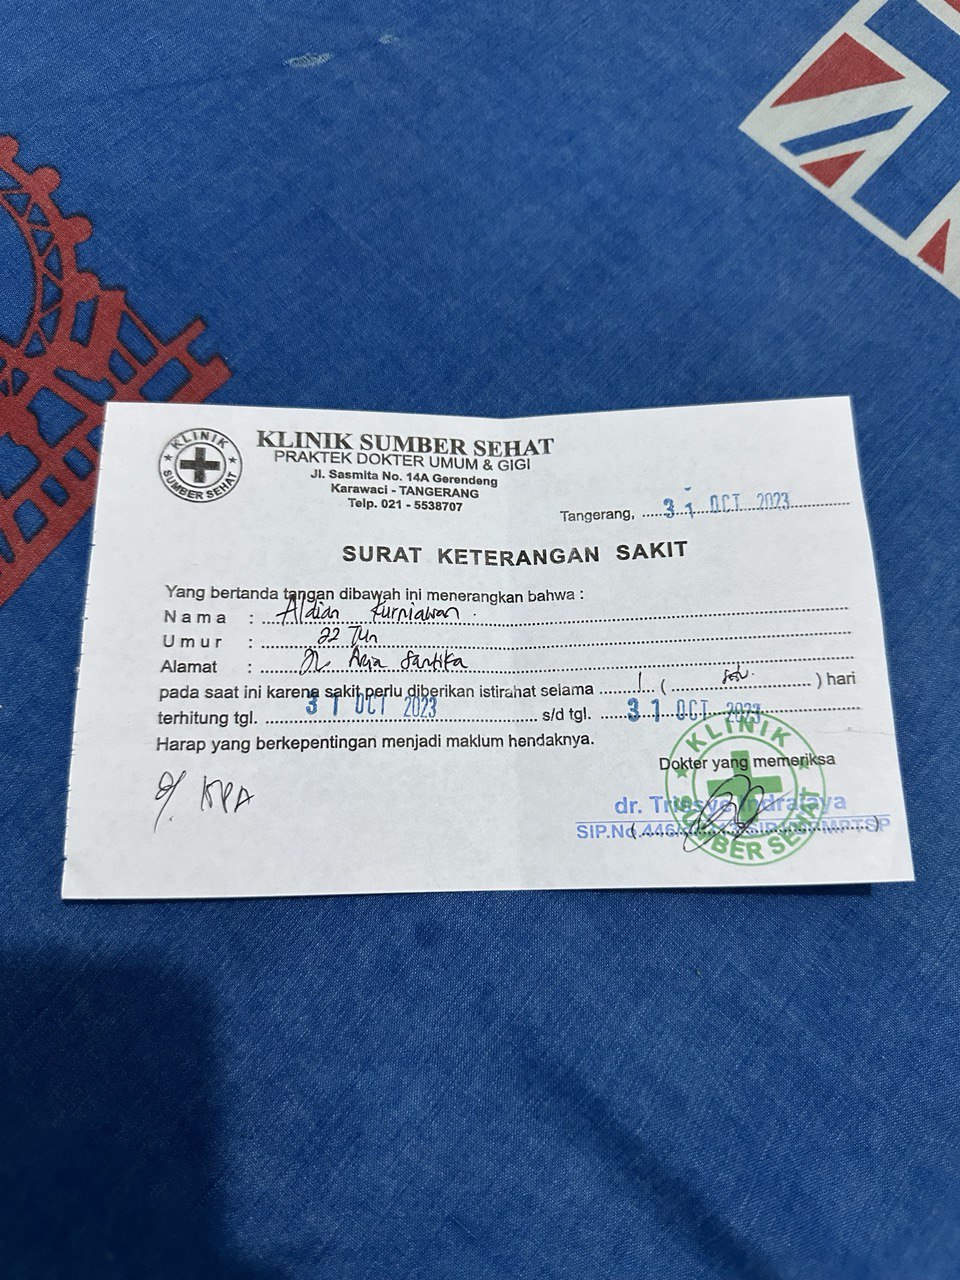 KLINIK
SUMBER SEHAT
KLINIK SUMBER SEHAT
PRAKTEK DOKTER UMUM & GIGI
Jl. Sasmita No. 14A Gerendeng
Karawaci - TANGERANG
Telp. 021 - 5538707
Tangerang, 31 OCT 2023
SURAT KETERANGAN SAKIT
Yang bertanda tangan dibawah ini menerangkan bahwa :
Nama : Aldian Kurniawan
Umur : 22 Thn
Alamat : Jl. Arja Santika
pada saat ini karena sakit perlu diberikan istirahat selama 1 ( satu ) hari
terhitung tgl. 31 OCT 2023 s/d tgl. 31 OCT 2023
Harap yang berkepentingan menjadi maklum hendaknya.
KLINIK
Dokter yang memeriksa
dr.
SIP.No.
SUMBER SEHAT